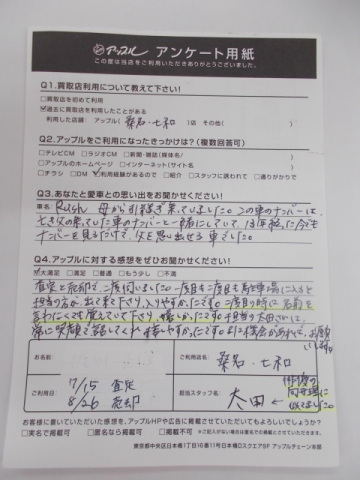 アップル アンケート用紙
この度は当店をご利用いただきありがとうございました。
Q1.買取店利用について教えて下さい!
□買取店を初めて利用
☑過去に買取店を利用したことがある
利用した店舗: アップル( 桑名・七和 )店 その他( )
Q2.アップルをご利用になったきっかけは?(複数回答可)
□テレビCM □ラジオCM □新聞・雑誌(媒体名/ )
□アップルのホームページ □インターネット(サイト名 )
□チラシ □DM ☑利用経験があるので □紹介 □スタッフに誘われて □通りがかりで
Q3.あなたと愛車との思い出をお聞かせください!
車名: Rush 母から引き継ぎ乗っていました。この車のナンバーは、
亡き父の乗っていた車のナンバーと一緒にしていて、
ナンバーを見るだけで、父を思い出せる車でした。
Q4.アップルに対する感想をぜひお聞かせください!
☑大満足 □満足 □普通 □もう少し □不満
査定と売却で、二度伺いました。一度目も二度目も駐車場に入ると
担当の方が出て来て下さり、入りやすかったです。二度目の時に名前を
言わなくても覚えていて下さり、嬉しかったです。担当の太田さんは、
常に笑顔で話してくれ、接しやすかったです。また機会があれば、お願い
します。
お名前
ご利用店名 桑名・七和
ご利用日 7/15 査定
8/26 売却
担当スタッフ名 太田 ←
お客様に書いていただいた感想を、アップルHPや広告に掲載させていただいてもよろしいでしょうか?
□実名で掲載可 □匿名なら掲載可 □掲載不可 ※ご記入がない場合は匿名での掲載とさせていただきます。
東京都中央区日本橋1丁目16番11号日本橋DスクエアSF アップルチェーン本部